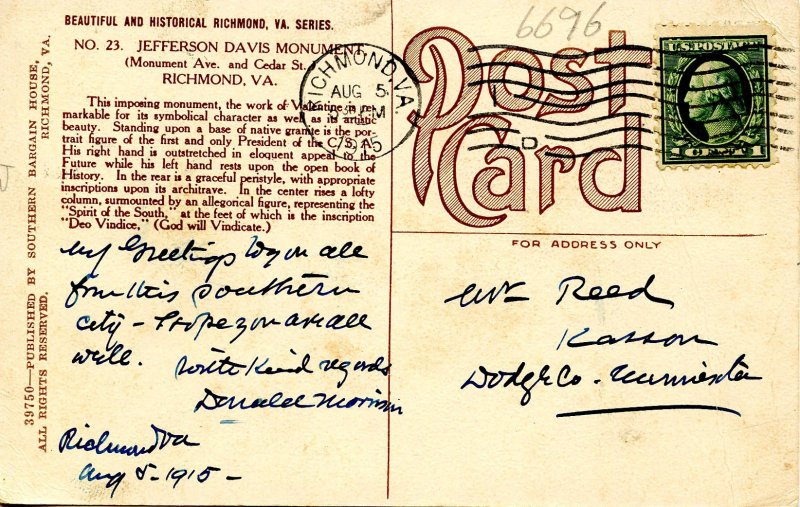 BEAUTIFUL AND HISTORICAL RICHMOND, VA. SERIES.
NO. 23. JEFFERSON DAVIS MONUMENT,
(Monument Ave. and Cedar St.)
RICHMOND, VA.
This imposing monument, the work of Valentine, is re-
markable for its symbolical character as well as its artistic
beauty. Standing upon a base of native granite is the por-
trait figure of the first and only President of the C. S. A.
His right hand is outstretched in eloquent appeal to the
Future while his left hand rests upon the open book of
History. In the rear is a graceful peristyle, with appropriate
inscriptions upon its architrave. In the center rises a lofty
column, surmounted by an allegorical figure, representing the
"Spirit of the South," at the feet of which is the inscription
"Deo Vindice," (God will Vindicate.)
My Greetings to you all
from this southern
city - I hope you are all
well. With Kind regards
Donald Morrison
Richmond Va
Aug 5 - 1915 -
39750—PUBLISHED BY SOUTHERN BARGAIN HOUSE,
RICHMOND, VA.
ALL RIGHTS RESERVED.
6696
Post
Card
RICHMOND, VA.
AUG 5
PM
1915
U.S. POSTAGE
1 CENT 1
FOR ADDRESS ONLY
Mr Reed
Kasson
Dodge Co. - Minnesota